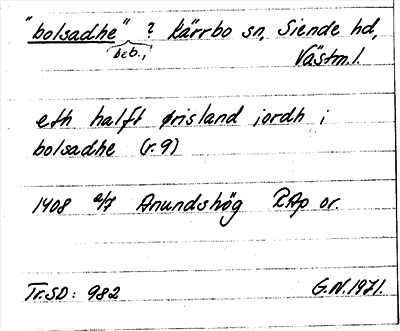 "bolsadhe" ? Kärrbo sn, Siende hd,
beb., Västm. l.
eth halft örisland iordh i
bolsadhe (r. 9)
1408 2/7 Anundshög RAp or.
Tr. SD: 982 G.N. 1971.